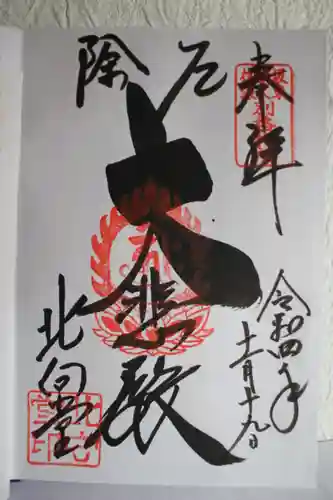 奉拝
令和四年
十一月十九日
厄除
大悲殿
北向堂
北向堂印